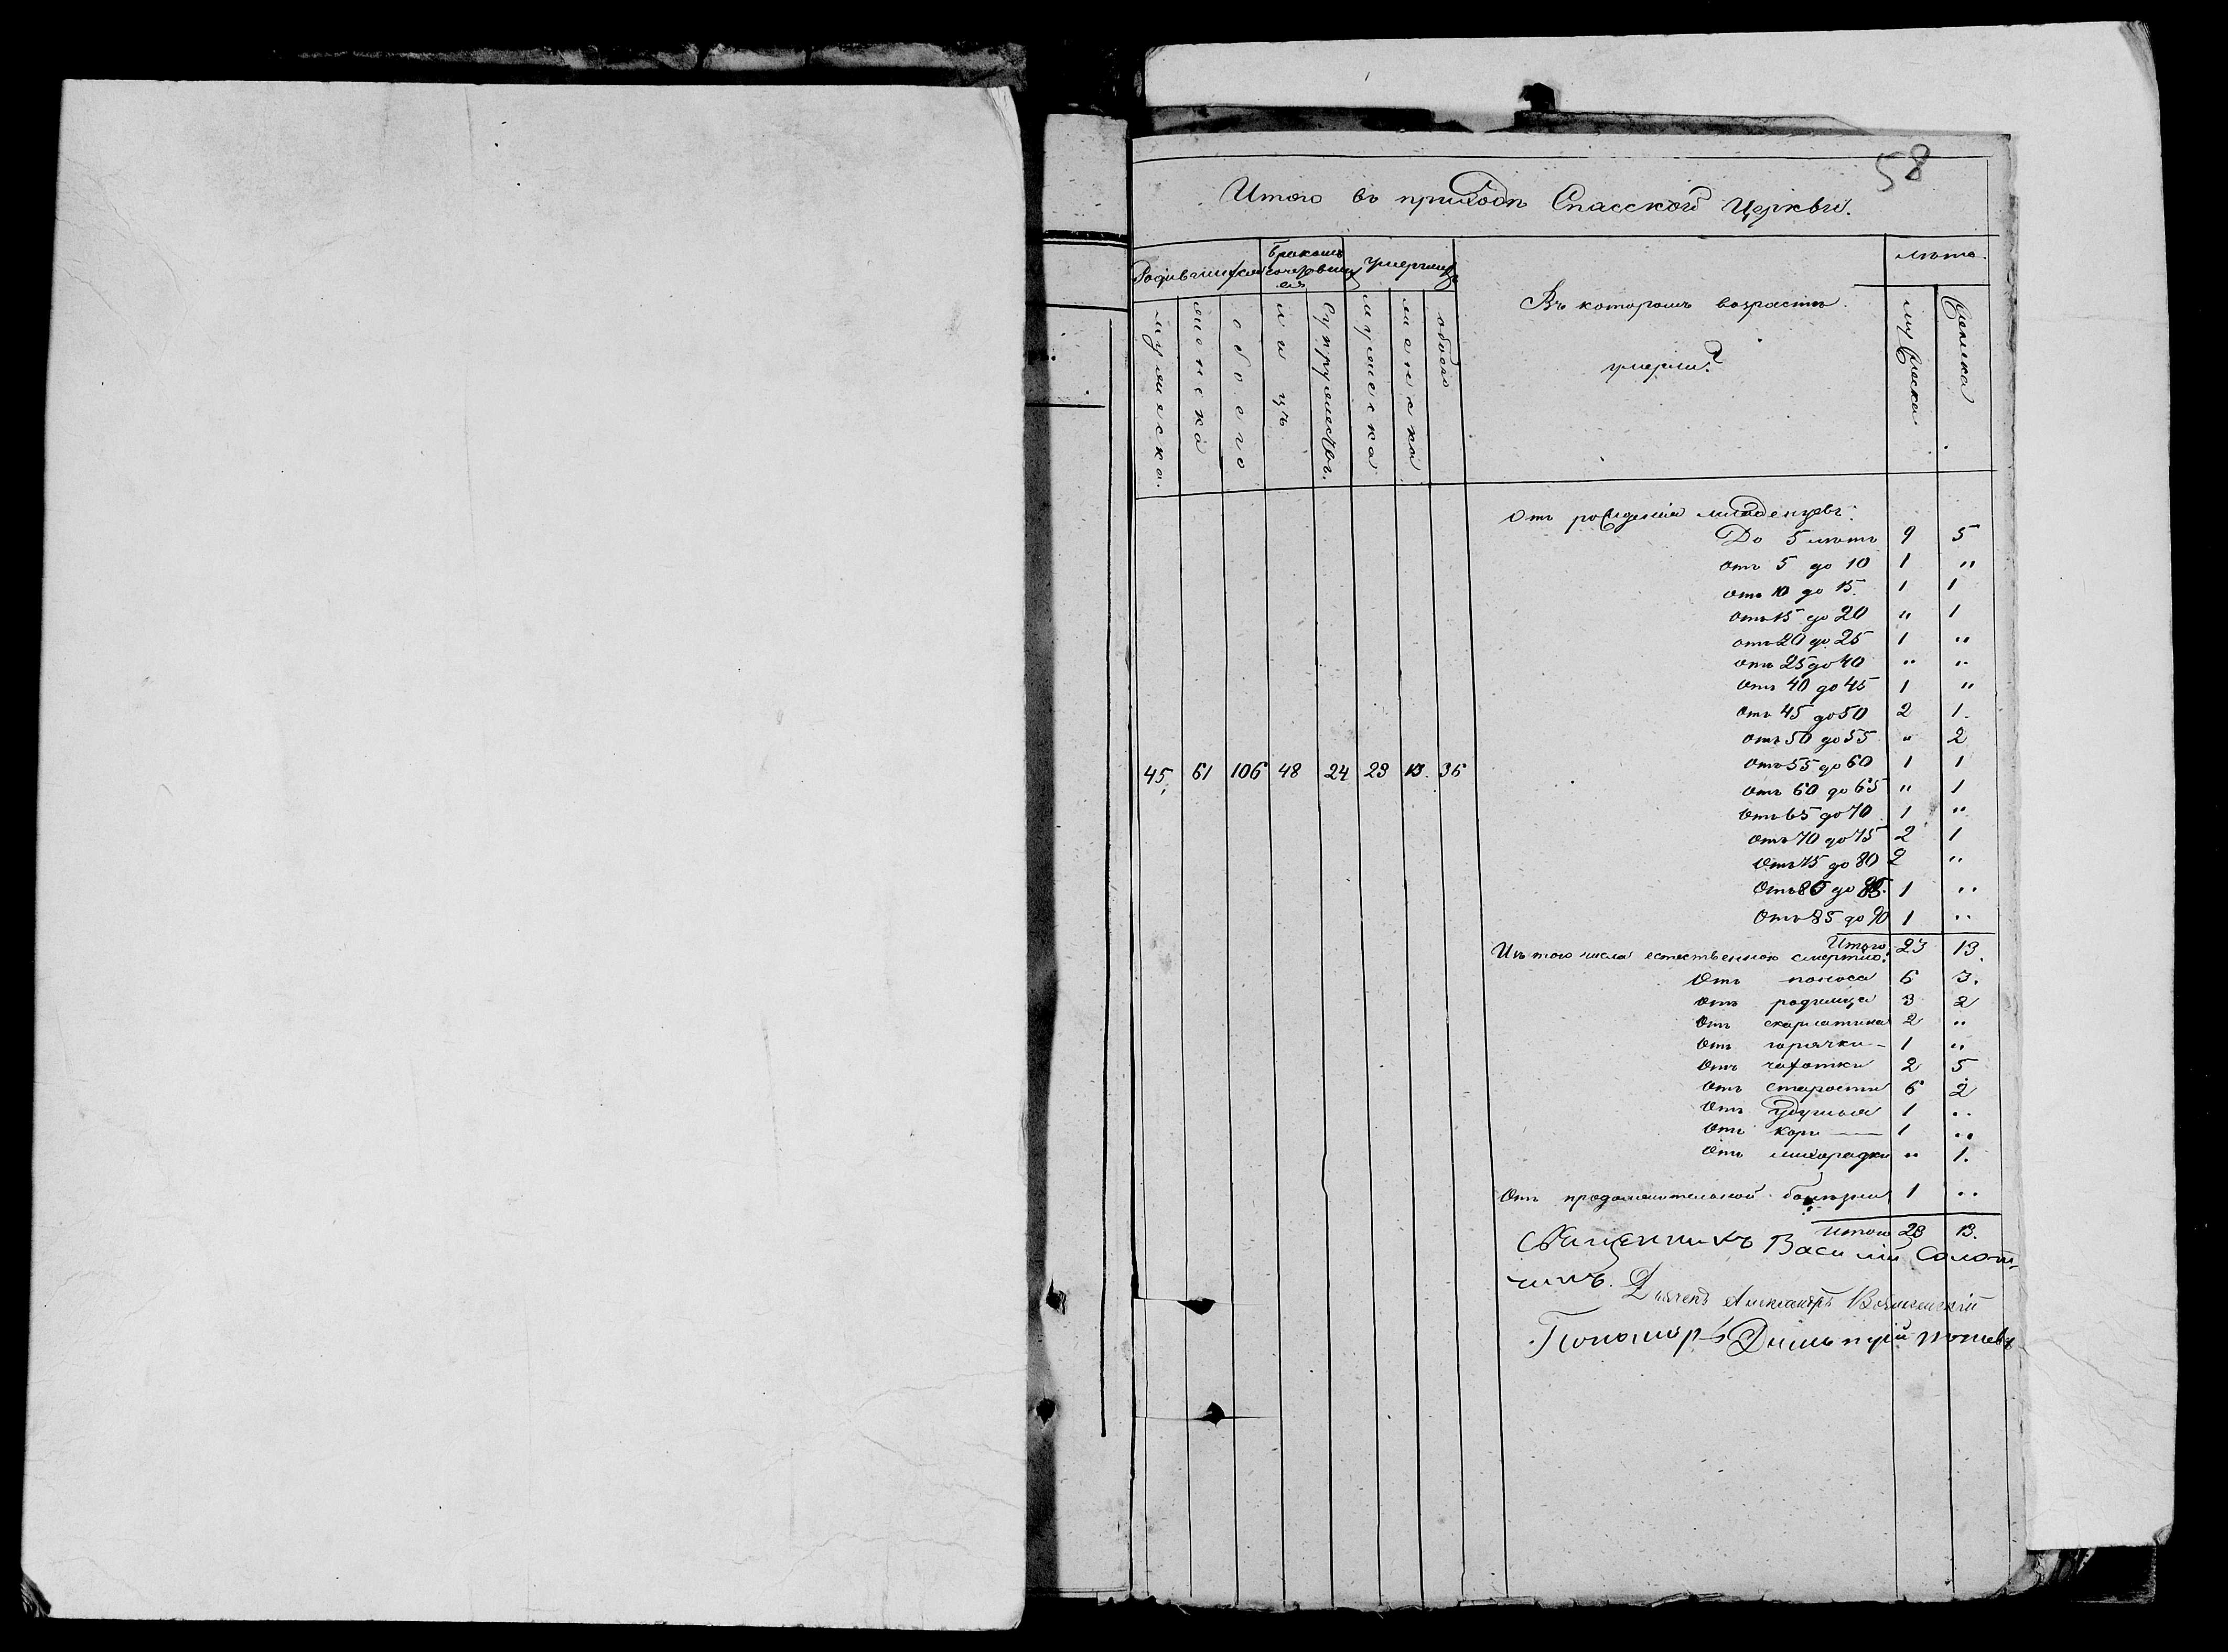 58
Итого въ приходѣ Спасской Церкви.
Родившихся
Бракомъ сочетавших
ся
Умершихъ
Въ которомъ возрастѣ
умерли?
лѣта.
мужеска.
женска
обоего
лицъ
Супружествъ.
мужеска
женска
обоего
мужеска
Женска
Отъ рожденія младенцевъ.
До 5 лѣтъ 9 5
отъ 5 до 10 1 "
отъ 10 до 15. 1 1
отъ 15 до 20 " 1
отъ 20 до 25 1 "
отъ 25 до 40 " "
отъ 40 до 45 1 "
отъ 45 до 50 2 1.
отъ 50 до 55 " 2
отъ 55 до 60 1 1
45, 61 106 48 24 23 13. 36
отъ 60 до 65 " 1
отъ 65 до 70 1 "
отъ 70 до 75 2 1
отъ 75 до 80 2 "
отъ 80 до 85. 1 "
отъ 85 до 90 1 "
Итого 23 13.
Изъ того числа естественною смертію:
Отъ поноса 6 3.
Отъ родимца 3 2
Отъ скарлатина 2 "
Отъ горячки - 1 "
Отъ чахотки 2 5
Отъ старости 6 2
Отъ удушья 1 "
Отъ кори — 1 "
Отъ лихорадки " 1.
Отъ продолжительной болѣзни 1 "
Итого 23 13.
Священникъ Василій Солот-
чинъ.
Дьячекъ Александръ
Пономарь Димитрій